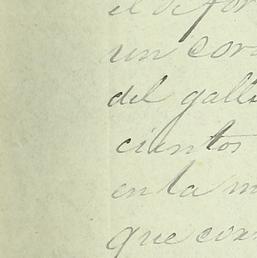 el de for
un cor
del gall
cientos
en la m
que con